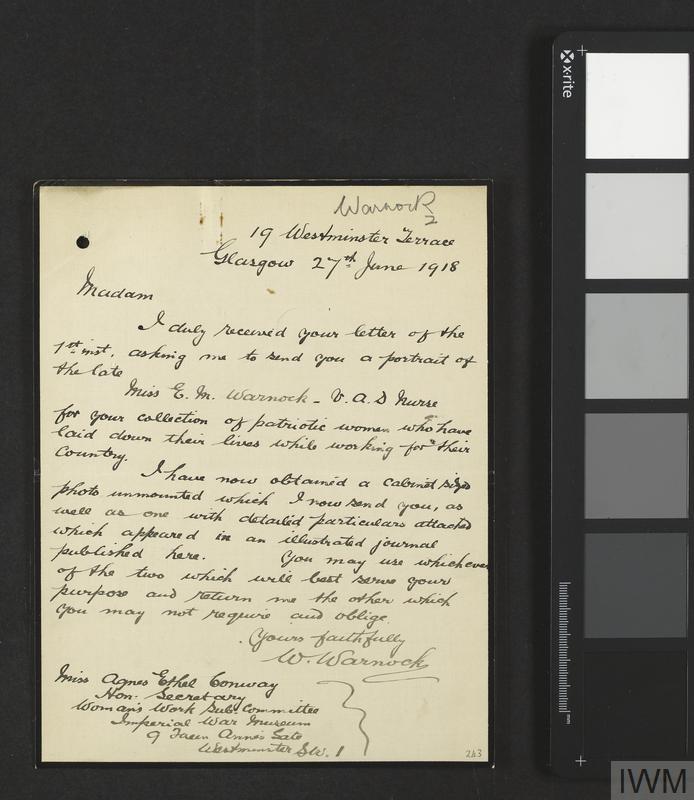 Warnock
2
19 Westminster Terrace
Glasgow 27th June 1918
Madam
I duly received your letter of the
1st inst, asking me to send you a portrait of
the late
Miss E. M. Warnock - V.A.D Nurse
for your collection of patriotic women who have
laid down their lives while working for their
Country.
I have now obtained a cabinet sized
photo unmounted which I now send you, as
well as one with detailed particulars attached
which appeared in an illustrated journal
published here. You may use whichever
of the two which will best serve your
purpose and return me the other which
you may not require and oblige.
Yours faithfully
W. Warnock
Miss Agnes Ethel Conway
Hon. Secretary
Woman's Work Sub. Committee
Imperial War Museum
9 Queen Anne's Gate
Westminster S.W. 1
243
x-rite
mm
IWM